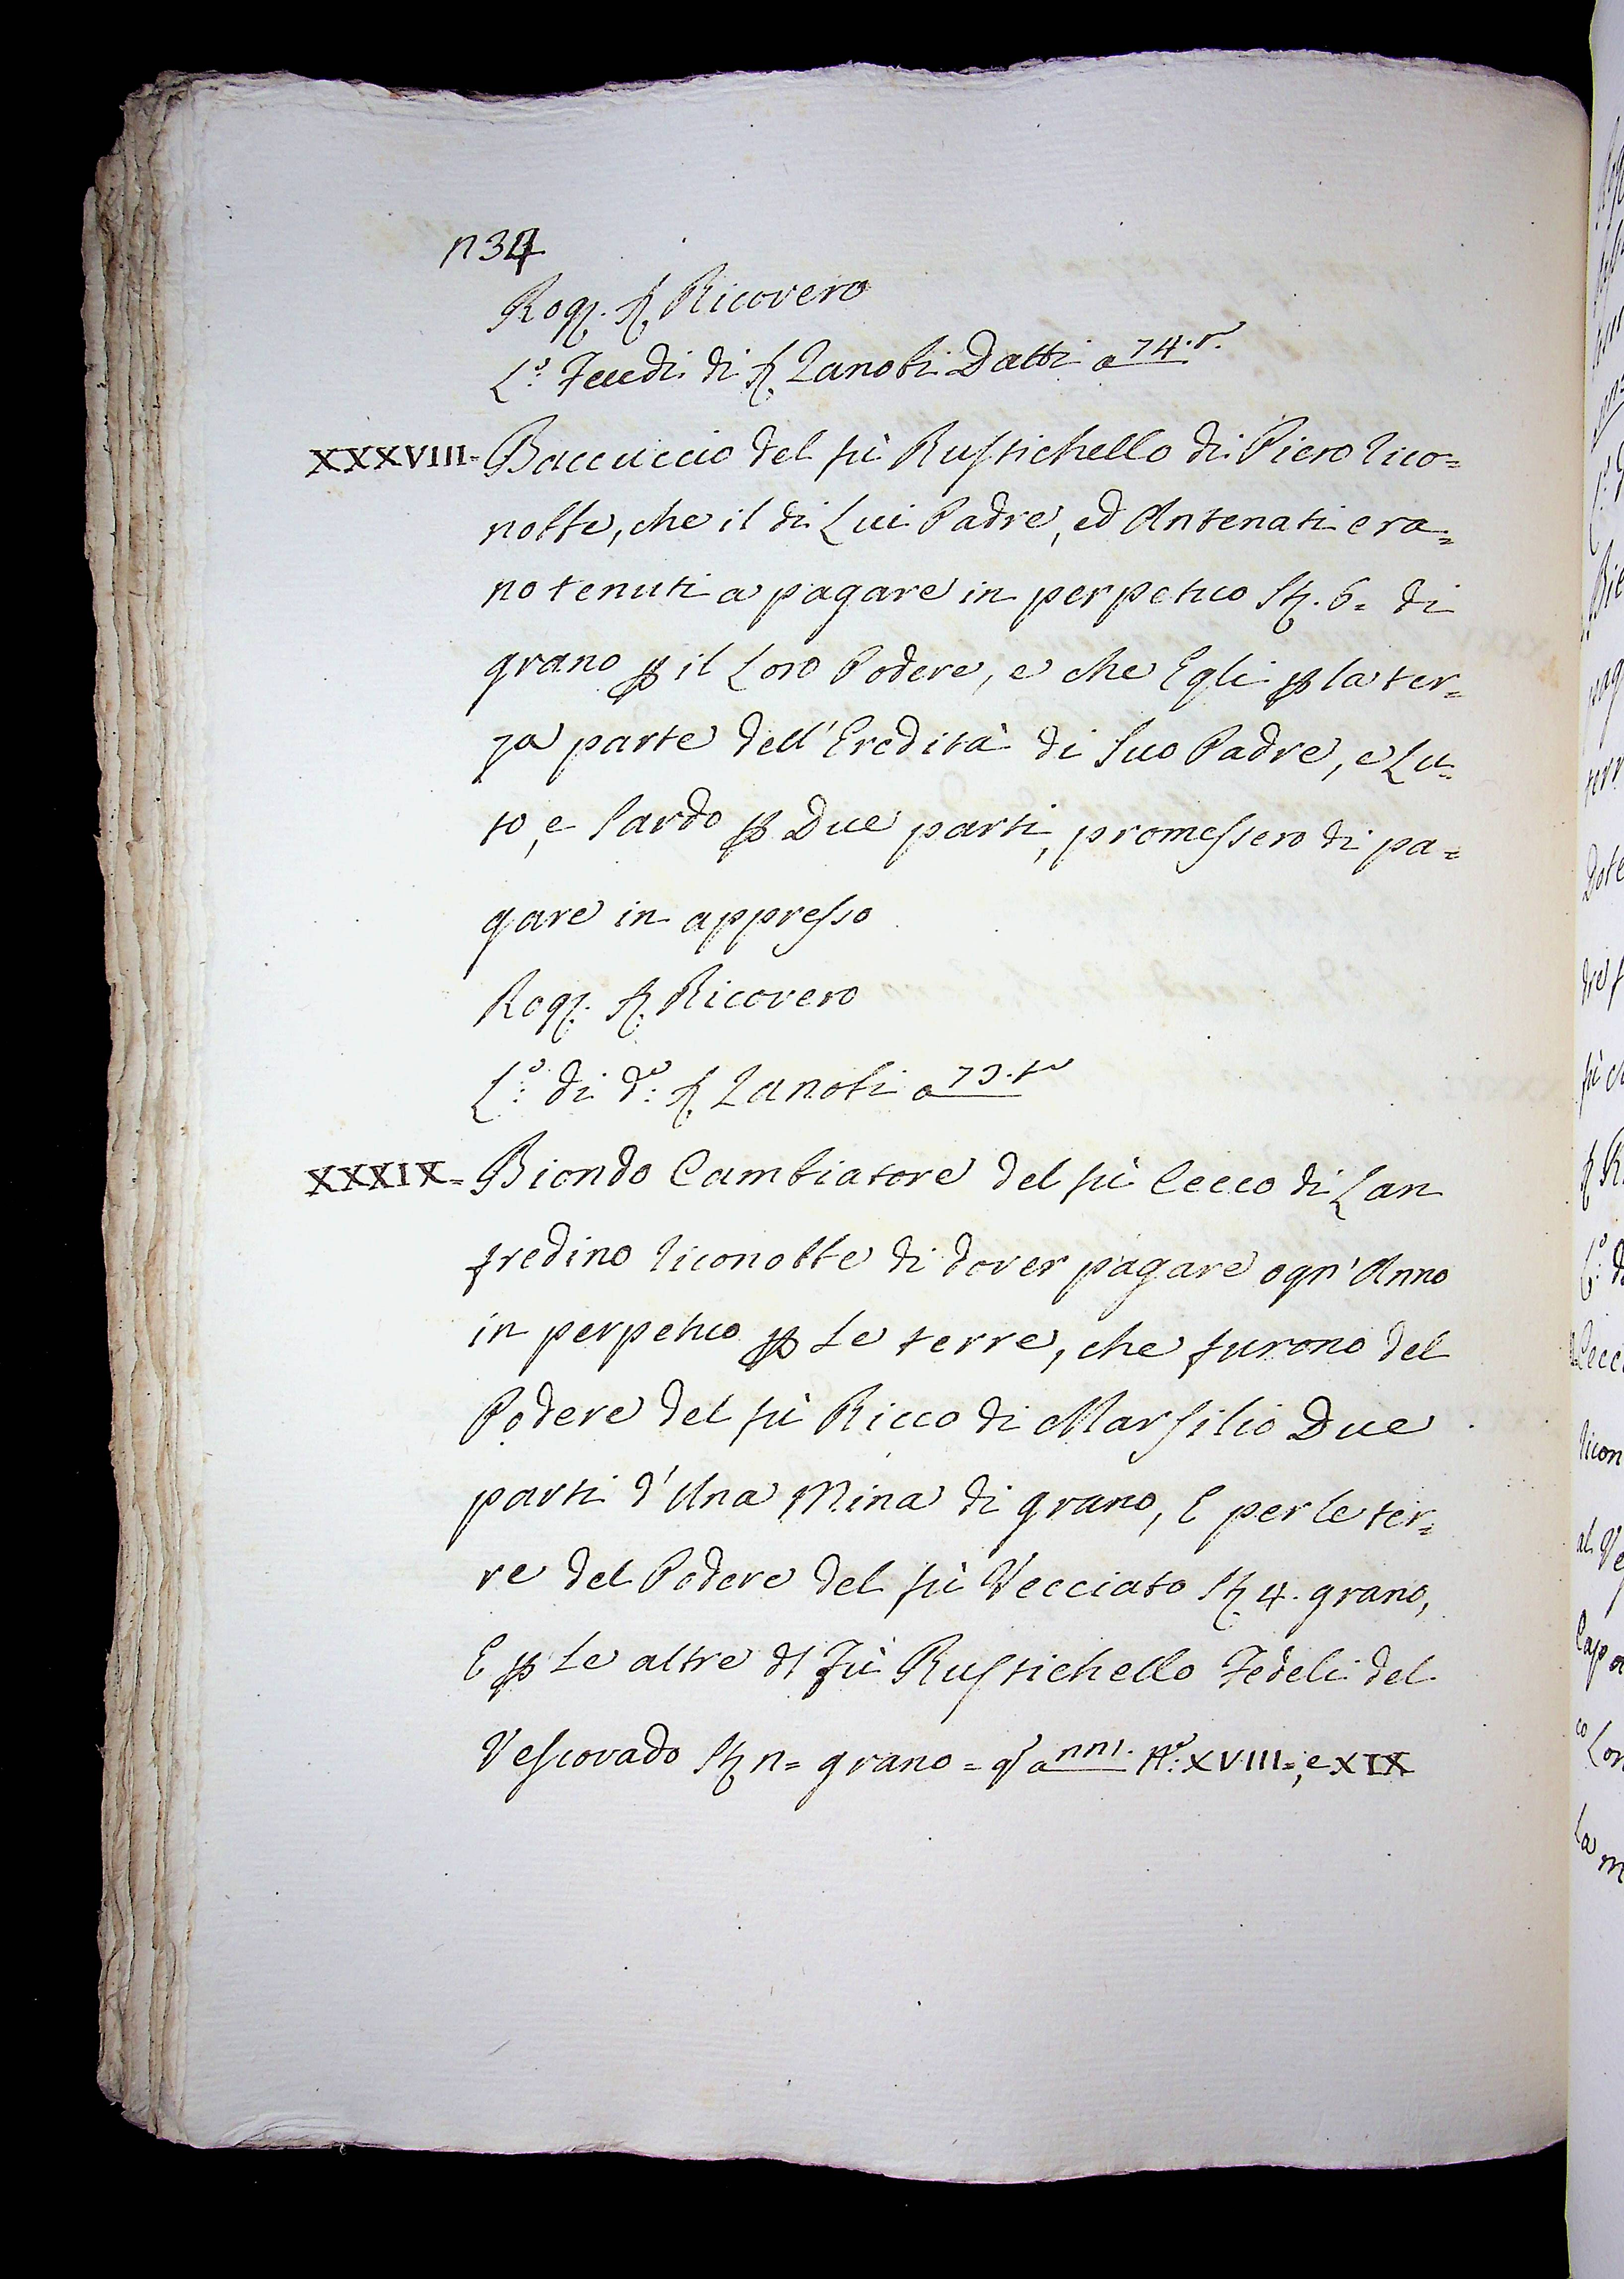 1134
Rog. S. Ricovero
L.o Feudi di S. Zanobi Datti a 74. r.
XXXVIII= Baccuccio del fù Rustichello di Piero rico=
nobbe, che il di Lui Padre, ed Antenati era=
no tenuti a pagare in perpetuo St. 6= di
grano p il Loro Podere, e che Egli p la ter=
za parte dell' Eredità di Suo Padre, e Lu=
to, e Sardo p Due parti, promessero di pa=
gare in appresso
Rog. S. Ricovero
L.o di d.o S. Zanobi a 73. t
XXXIX= Biondo Cambiatore del fù Cecco di Lan
fredino riconobbe di dover pagare ogn' Anno
in perpetuo p Le terre, che furono del
Podere del fù Ricco di Marsilio Due
parti d' Una Mina di grano, E per le ter=
re del Podere del fù Vecciato St. 4. grano,
E p Le altre dl Fù Rustichello Fedeli del
Vescovado St. 11= grano = a 1111. N.o XVIII=, e XIX